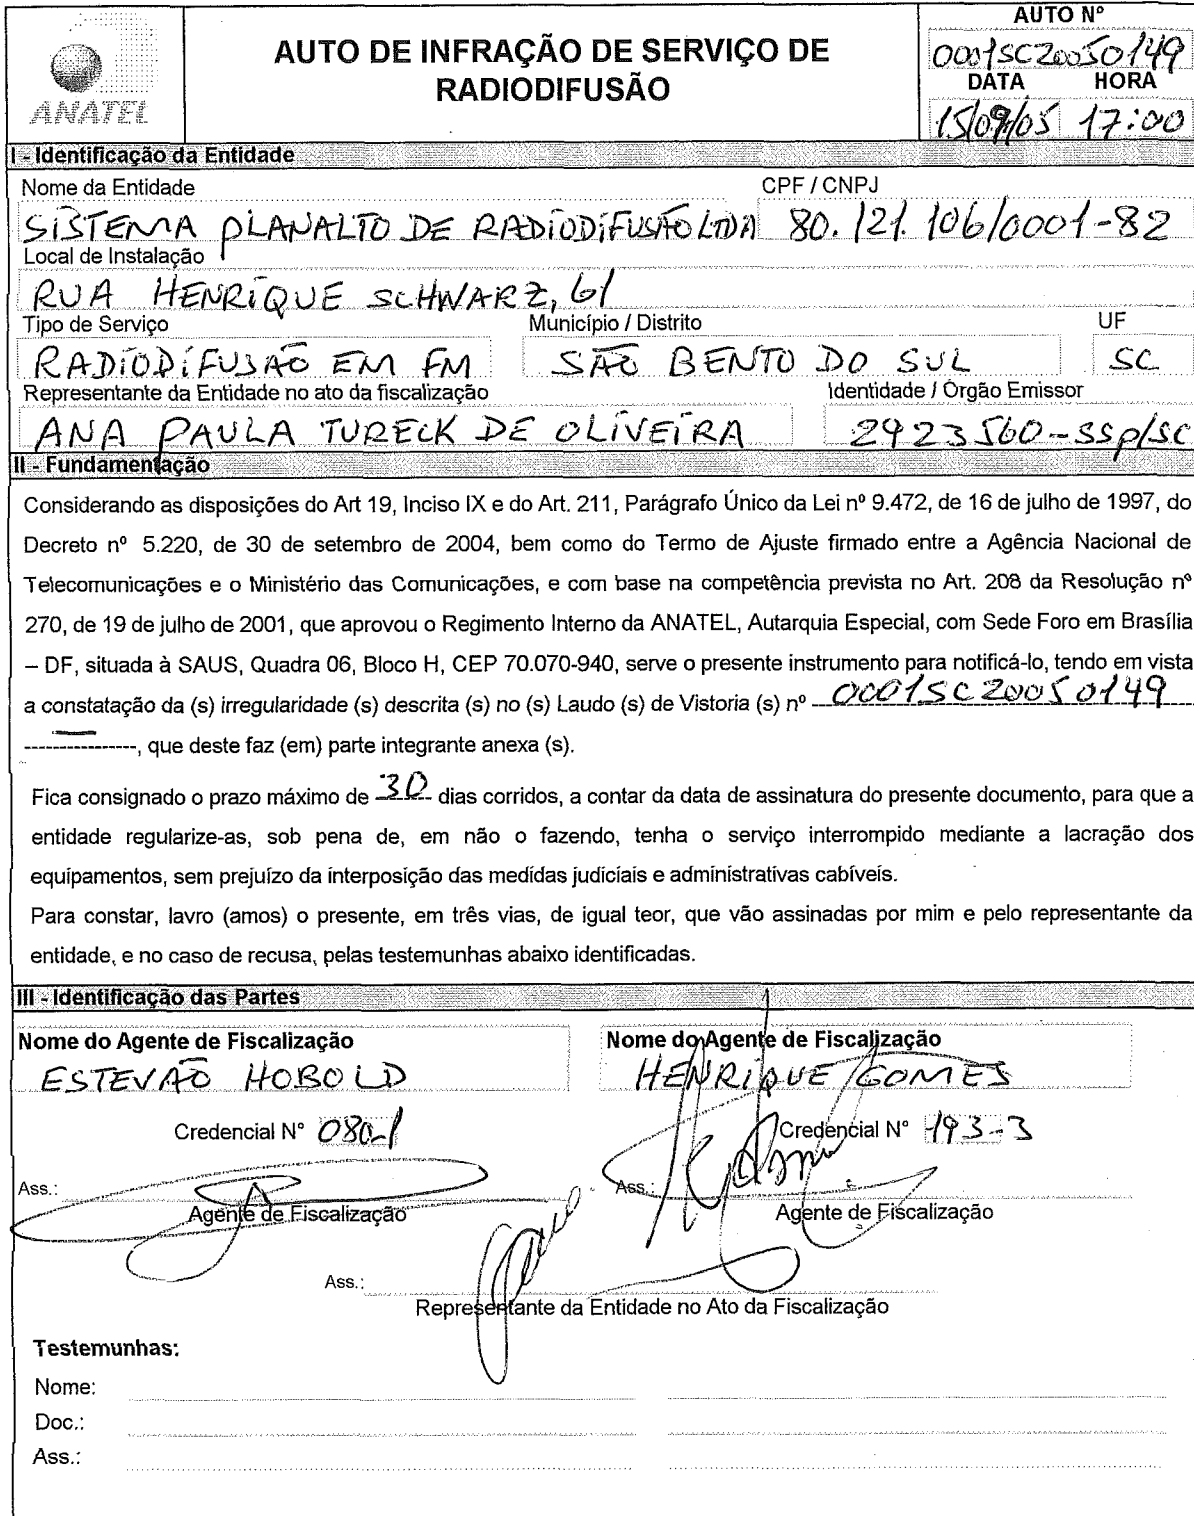 ANATEL
AUTO DE INFRAÇÃO DE SERVIÇO DE
RADIODIFUSÃO
AUTO Nº
0001SC20050149
DATA HORA
15/09/05 17:00
I - Identificação da Entidade
Nome da Entidade CPF / CNPJ
SISTEMA PLANALTO DE RADIODIFUSÃO LTDA 80.121.106/0001-82
Local de Instalação
RUA HENRIQUE SCHWARZ, 61
Tipo de Serviço Município / Distrito UF
RADIODIFUSÃO EM FM SÃO BENTO DO SUL SC
Representante da Entidade no ato da fiscalização Identidade / Orgão Emissor
ANA PAULA TURECK DE OLIVEIRA 2923560-SSP/SC
II - Fundamentação
Considerando as disposições do Art 19, Inciso IX e do Art. 211, Parágrafo Único da Lei nº 9.472, de 16 de julho de 1997, do
Decreto nº 5.220, de 30 de setembro de 2004, bem como do Termo de Ajuste firmado entre a Agência Nacional de
Telecomunicações e o Ministério das Comunicações, e com base na competência prevista no Art. 208 da Resolução nº
270, de 19 de julho de 2001, que aprovou o Regimento Interno da ANATEL, Autarquia Especial, com Sede Foro em Brasília
– DF, situada à SAUS, Quadra 06, Bloco H, CEP 70.070-940, serve o presente instrumento para notificá-lo, tendo em vista
a constatação da (s) irregularidade (s) descrita (s) no (s) Laudo (s) de Vistoria (s) nº 0001SC20050149
----------------, que deste faz (em) parte integrante anexa (s).
Fica consignado o prazo máximo de 30 dias corridos, a contar da data de assinatura do presente documento, para que a
entidade regularize-as, sob pena de, em não o fazendo, tenha o serviço interrompido mediante a lacração dos
equipamentos, sem prejuízo da interposição das medidas judiciais e administrativas cabíveis.
Para constar, lavro (amos) o presente, em três vias, de igual teor, que vão assinadas por mim e pelo representante da
entidade, e no caso de recusa, pelas testemunhas abaixo identificadas.
III - Identificação das Partes
Nome do Agente de Fiscalização Nome do Agente de Fiscalização
ESTEVÃO HOBOLD HENRIQUE GOMES
Credencial Nº 080-1 Credencial Nº 193-3
Ass.: Ass.:
Agente de Fiscalização Agente de Fiscalização
Ass.:
Representante da Entidade no Ato da Fiscalização
Testemunhas:
Nome:
Doc.:
Ass.: